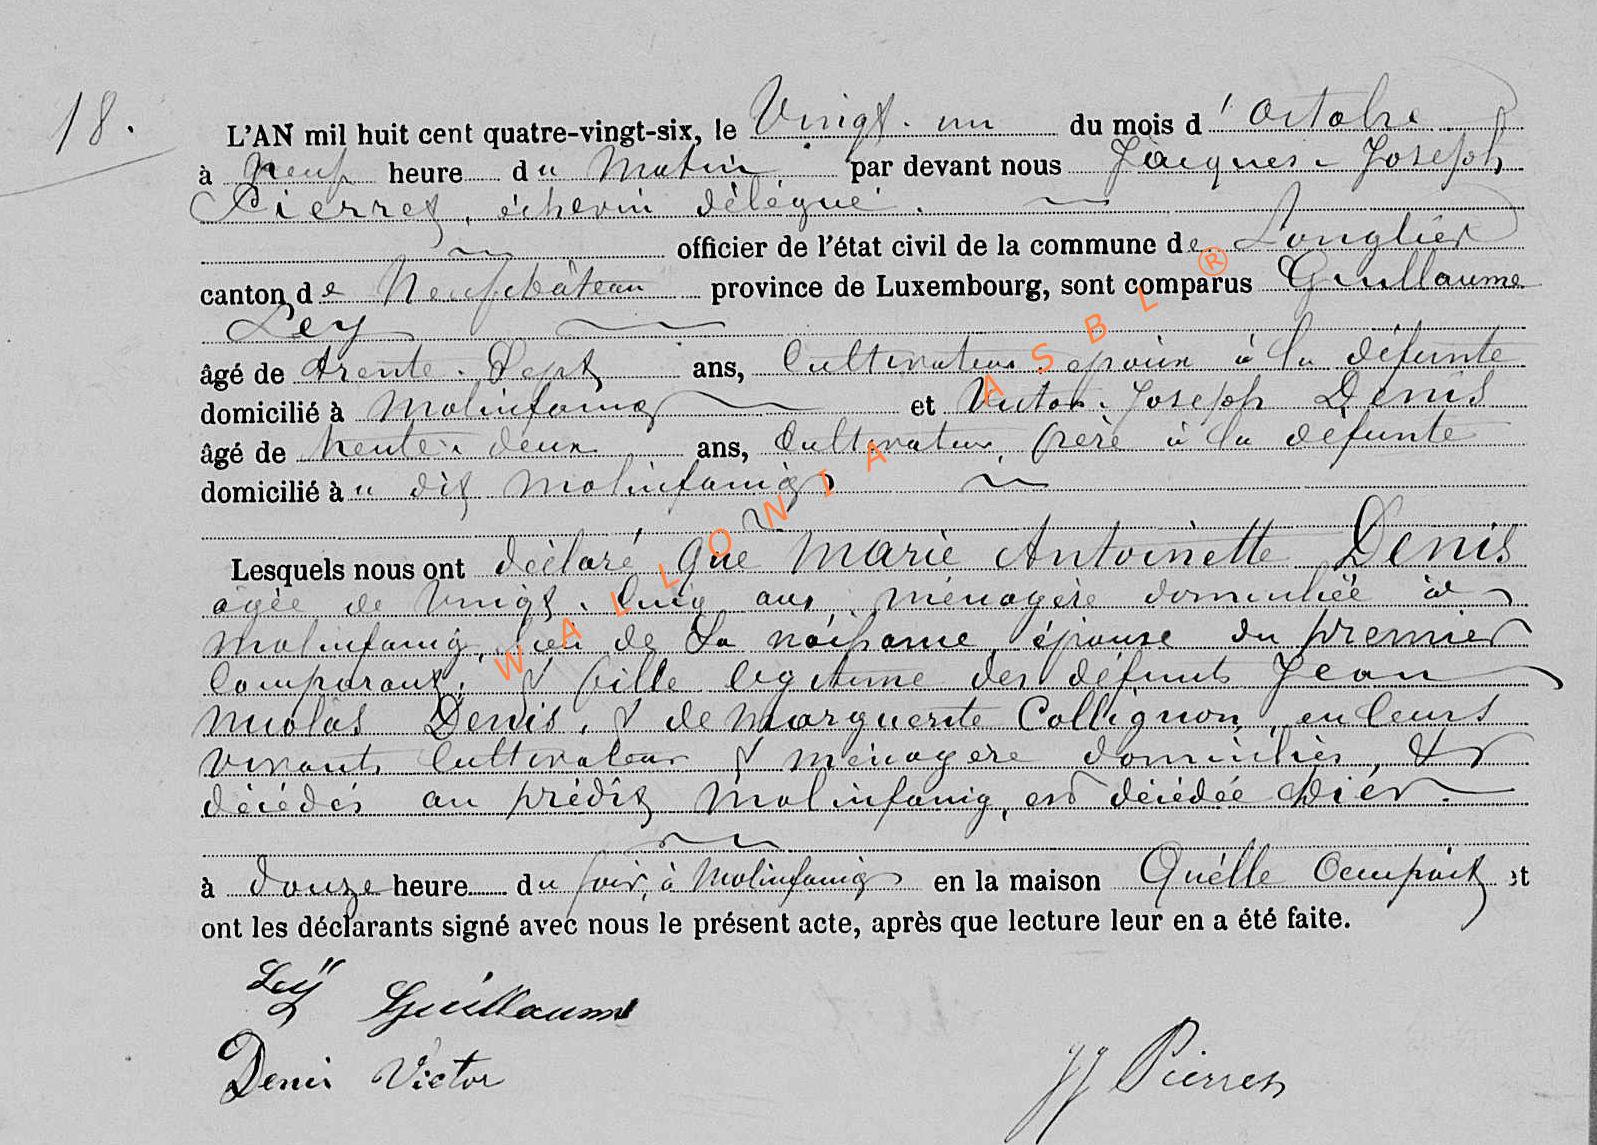 18.
L'AN mil huit cent quatre-vingt-six, le Vingt-un du mois d'Octobre
à neuf heure du Matin par devant nous Jacques-Joseph
Pierret, échevin délégué.
officier de l'état civil de la commune de Longlier
canton de Neufchâteau province de Luxembourg, sont comparus Guillaume
Ley
âgé de trente-Sept ans, Cultivateur époux à la défunte
domicilié à Molinfaing et Victor-Joseph Denis
âgé de trente-deux ans, Cultivateur, frère à la défunte
domicilié à u dit Molinfaing
Lesquels nous ont déclaré que Marie Antoinette Denis
agée de Vingt-Cinq ans, ménagère domiciliée à
Molinfaing, lieu de Sa naissance, épouse du premier
Comparant, & fille légitime des défunts Jean
Nicolas Denis, & de Marguerite Collignon, en leurs
vivants Cultivateur & ménagère domiciliés, &
décédés au prédit Molinfaing, est décédée hier.
à douze heure du soir, à Molinfaing en la maison Qu'élle Occupait et
ont les déclarants signé avec nous le présent acte, après que lecture leur en a été faite.
Leÿ Guillaume
Denis Victor
JJ Pierret
WALLONIA ASBL ®